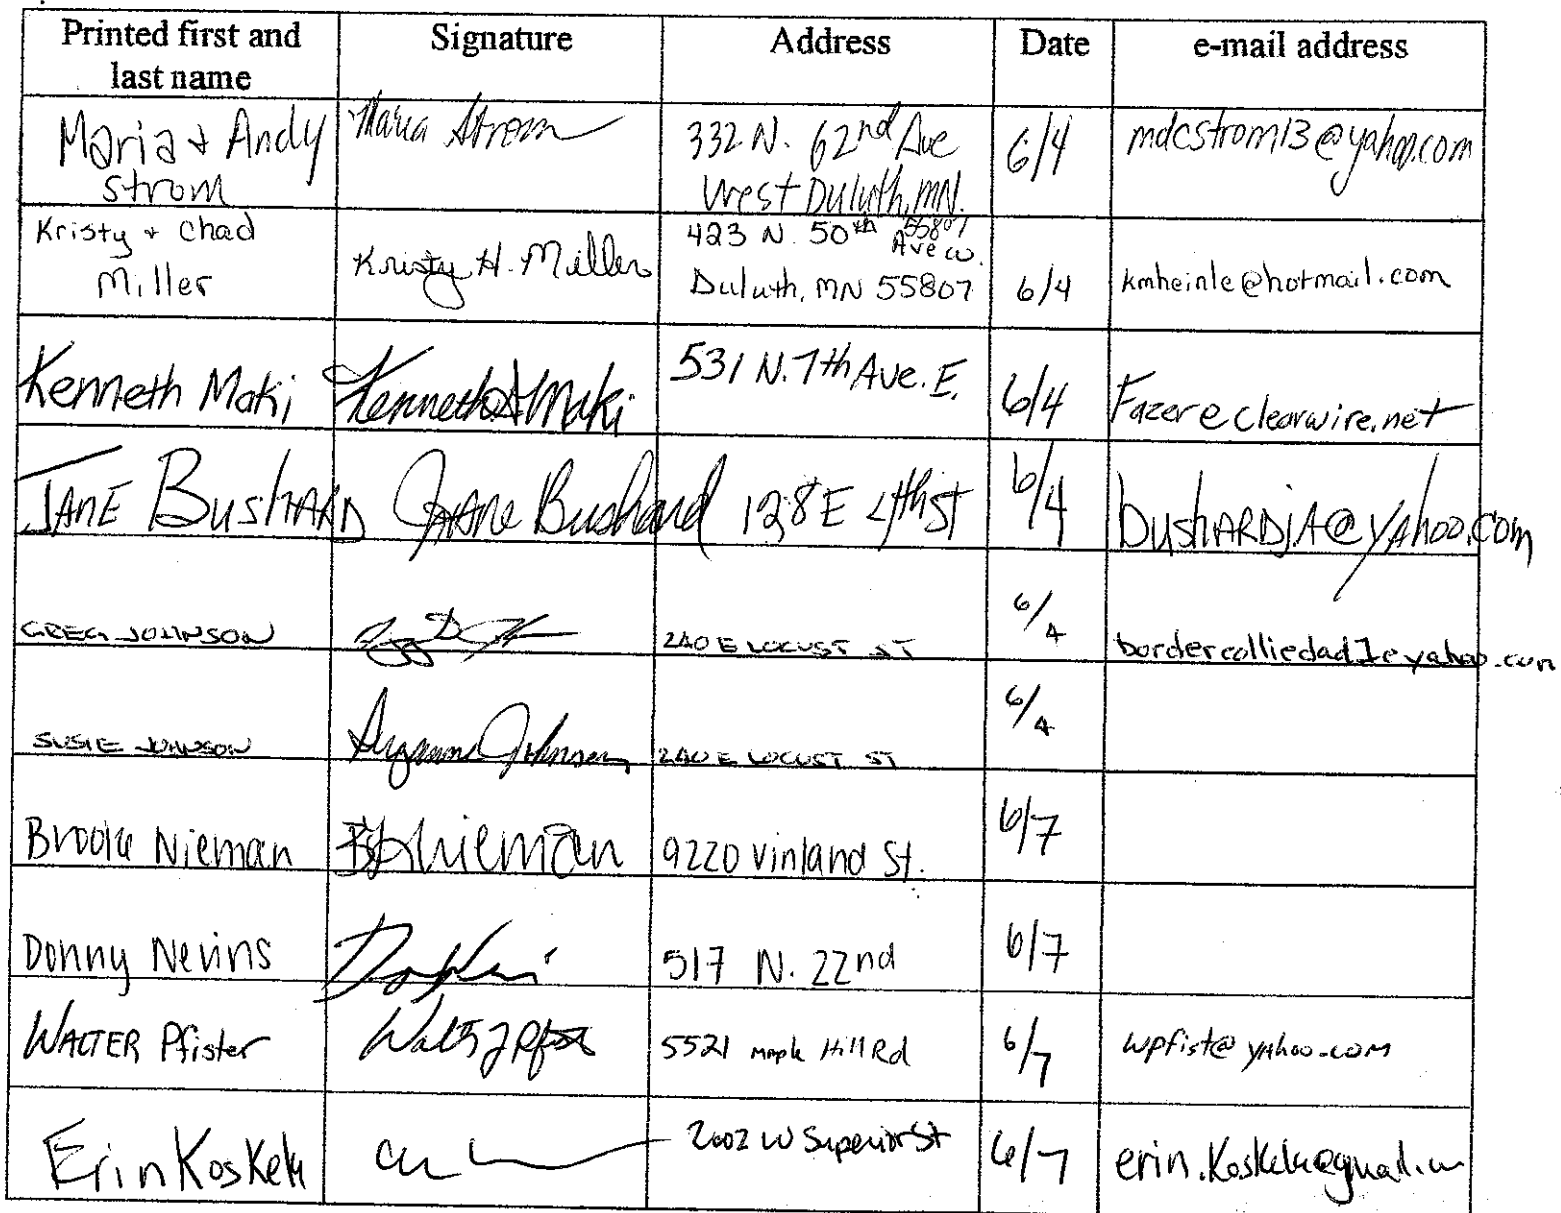 Printed first and last name Signature Address Date e-mail address
Maria + Andy Strom Maria Strom 332 N. 62nd Ave West Duluth, MN. 55807 6/4 mdcstrom13@yahoo.com
Kristy + Chad Miller Kristy H. Miller 423 N. 50th Ave W. Duluth, MN 55807 6/4 kmheinle@hotmail.com
Kenneth Maki Kenneth A Maki 531 N. 7th Ave. E. 6/4 Fazer@clearwire.net
JANE BushARD Jane Bushard 128 E 4th st 6/4 bushARDjA@yAhoo.com
GREG JOHNSON 240 E LOCUST ST 6/4 bordercolliedad1@yahoo.com
SUSIE JOHNSON Suzanne Johnson 240 E LOCUST ST 6/4
Brooke Nieman B Nieman 9220 Vinland St. 6/7
Donny Nevins 517 N. 22nd 6/7
WALTER Pfister Walt J Pfister 5521 Maple Hill Rd 6/7 wpfist@yahoo.com
Erin Koskela 2002 W Superior St 6/7 erin.koskela@gmail.com